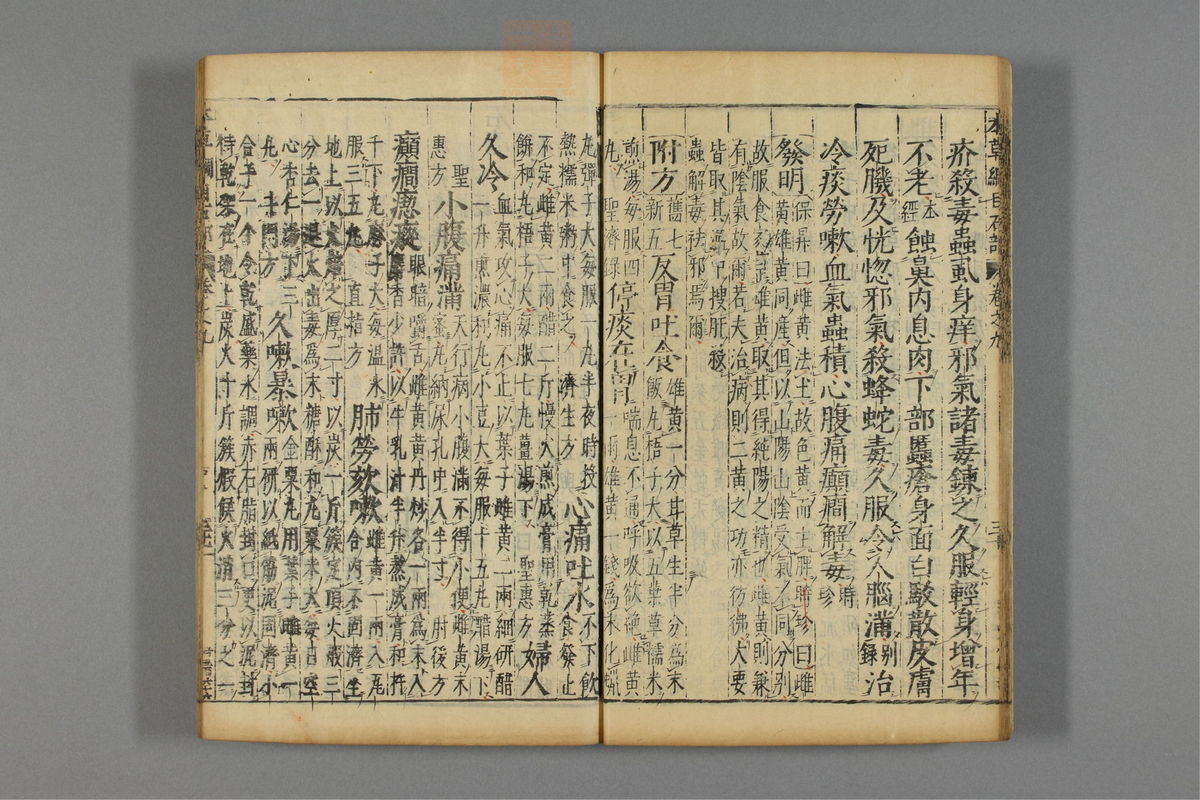 本草綱目石部 卷之九
疥殺毒蟲虱身痒邪氣諸毒鍊之久服輕身增年
不老本經蝕鼻內息肉下部䘌瘡身面白駁散皮膚
死肌及恍惚邪氣殺蜂蛇毒久服令人腦滿別錄治
冷痰勞嗽血氣蟲積心腹痛癲癎解毒時珍
發明保昇曰雌黃法土故色黃而主脾時珍曰雌
黃雄黃同產但以山陽山陰受氣不同分別
故服食家重雄黃取其得純陽之精也雌黃則兼
有陰氣故爾若夫治病則二黃之功亦彷彿大要
皆取其溫中搜肝殺
蟲解毒祛邪焉爾
附方舊七新五反胃吐食雌黃一分甘草生半分爲末
飯丸梧子大以五葉草糯米
煎湯每服四丸聖濟錄停痰在胃喘息不通呼吸欲絕雌黃
一兩雄黃一錢爲末化蠟
丸彈子大每服一丸半夜時投
熱糯米粥中食之濟生方心痛吐水不下飲
食發止
不定雌黃二兩醋二斤慢火煎成膏用乾蒸
餅和丸梧子大每服七丸薑湯下聖惠方婦人
久冷血氣攻心痛不止以葉子雌黃二兩細研醋
一升煎濃和丸小豆大每服十五丸醋湯下
聖惠方小腹痛滿天行病小腹滿不得小便雌黃末
蜜丸納尿孔中入半寸肘後方
癲癎瘛瘲眼暗嚼舌雌黃黃丹炒各一兩爲末入
麝香少許以牛乳汁半升熬成膏和杵
千下丸麻子大每溫水
服三五丸直指方肺勞欬嗽雌黃一兩入瓦
合內不固濟坐
地上以灰培之厚二寸以炭一斤簇定頂火煅三
分去一退火出毒爲末蟾酥和丸粟米大每日空
心杏仁湯下三
丸斗門方久嗽暴嗽金粟丸用葉子雌黃一
兩研以紙筋泥固濟小
合子一個令乾盛藥水調赤石脂封口更以泥封
待乾架在地上炭火十斤簇煅候火消三分之一